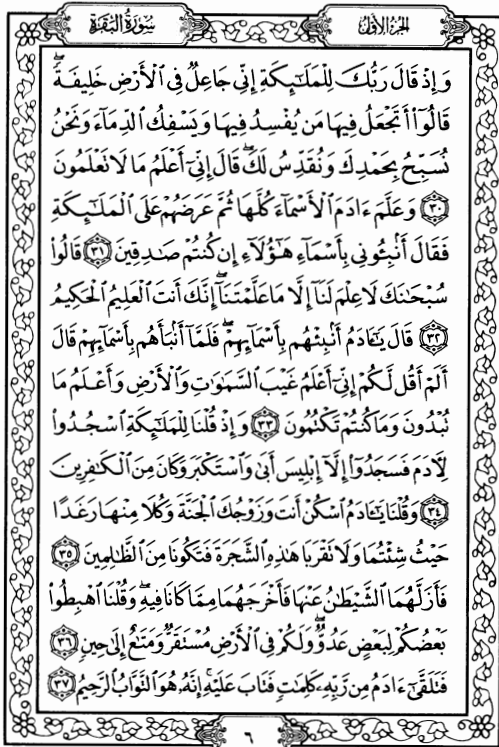 سُورَةُ البَقَرَةِ
الجُزءُ الأوّل
وَإِذْ قَالَ رَبُّكَ لِلْمَلَٰٓئِكَةِ إِنِّي جَاعِلٌ فِي ٱلْأَرْضِ خَلِيفَةً ۖ
قَالُوٓا۟ أَتَجْعَلُ فِيهَا مَن يُفْسِدُ فِيهَا وَيَسْفِكُ ٱلدِّمَآءَ وَنَحْنُ
نُسَبِّحُ بِحَمْدِكَ وَنُقَدِّسُ لَكَ ۖ قَالَ إِنِّيٓ أَعْلَمُ مَا لَا تَعْلَمُونَ
٣٠ وَعَلَّمَ ءَادَمَ ٱلْأَسْمَآءَ كُلَّهَا ثُمَّ عَرَضَهُمْ عَلَى ٱلْمَلَٰٓئِكَةِ
فَقَالَ أَنۢبِـُٔونِي بِأَسْمَآءِ هَٰٓؤُلَآءِ إِن كُنتُمْ صَٰدِقِينَ ٣١ قَالُوا۟
سُبْحَٰنَكَ لَا عِلْمَ لَنَآ إِلَّا مَا عَلَّمْتَنَآ ۖ إِنَّكَ أَنتَ ٱلْعَلِيمُ ٱلْحَكِيمُ
٣٢ قَالَ يَٰٓـَٔادَمُ أَنۢبِئْهُم بِأَسْمَآئِهِمْ ۖ فَلَمَّآ أَنۢبَأَهُم بِأَسْمَآئِهِمْ قَالَ
أَلَمْ أَقُل لَّكُمْ إِنِّيٓ أَعْلَمُ غَيْبَ ٱلسَّمَٰوَٰتِ وَٱلْأَرْضِ وَأَعْلَمُ مَا
تُبْدُونَ وَمَا كُنتُمْ تَكْتُمُونَ ٣٣ وَإِذْ قُلْنَا لِلْمَلَٰٓئِكَةِ ٱسْجُدُوا۟
لِءَادَمَ فَسَجَدُوٓا۟ إِلَّآ إِبْلِيسَ أَبَىٰ وَٱسْتَكْبَرَ وَكَانَ مِنَ ٱلْكَٰفِرِينَ
٣٤ وَقُلْنَا يَٰٓـَٔادَمُ ٱسْكُنْ أَنتَ وَزَوْجُكَ ٱلْجَنَّةَ وَكُلَا مِنْهَا رَغَدًا
حَيْثُ شِئْتُمَا وَلَا تَقْرَبَا هَٰذِهِ ٱلشَّجَرَةَ فَتَكُونَا مِنَ ٱلظَّٰلِمِينَ ٣٥
فَأَزَلَّهُمَا ٱلشَّيْطَٰنُ عَنْهَا فَأَخْرَجَهُمَا مِمَّا كَانَا فِيهِ ۖ وَقُلْنَا ٱهْبِطُوا۟
بَعْضُكُمْ لِبَعْضٍ عَدُوٌّ ۖ وَلَكُمْ فِي ٱلْأَرْضِ مُسْتَقَرٌّ وَمَتَٰعٌ إِلَىٰ حِينٍ ٣٦
فَتَلَقَّىٰٓ ءَادَمُ مِن رَّبِّهِۦ كَلِمَٰتٍ فَتَابَ عَلَيْهِ ۚ إِنَّهُۥ هُوَ ٱلتَّوَّابُ ٱلرَّحِيمُ ٣٧
٦